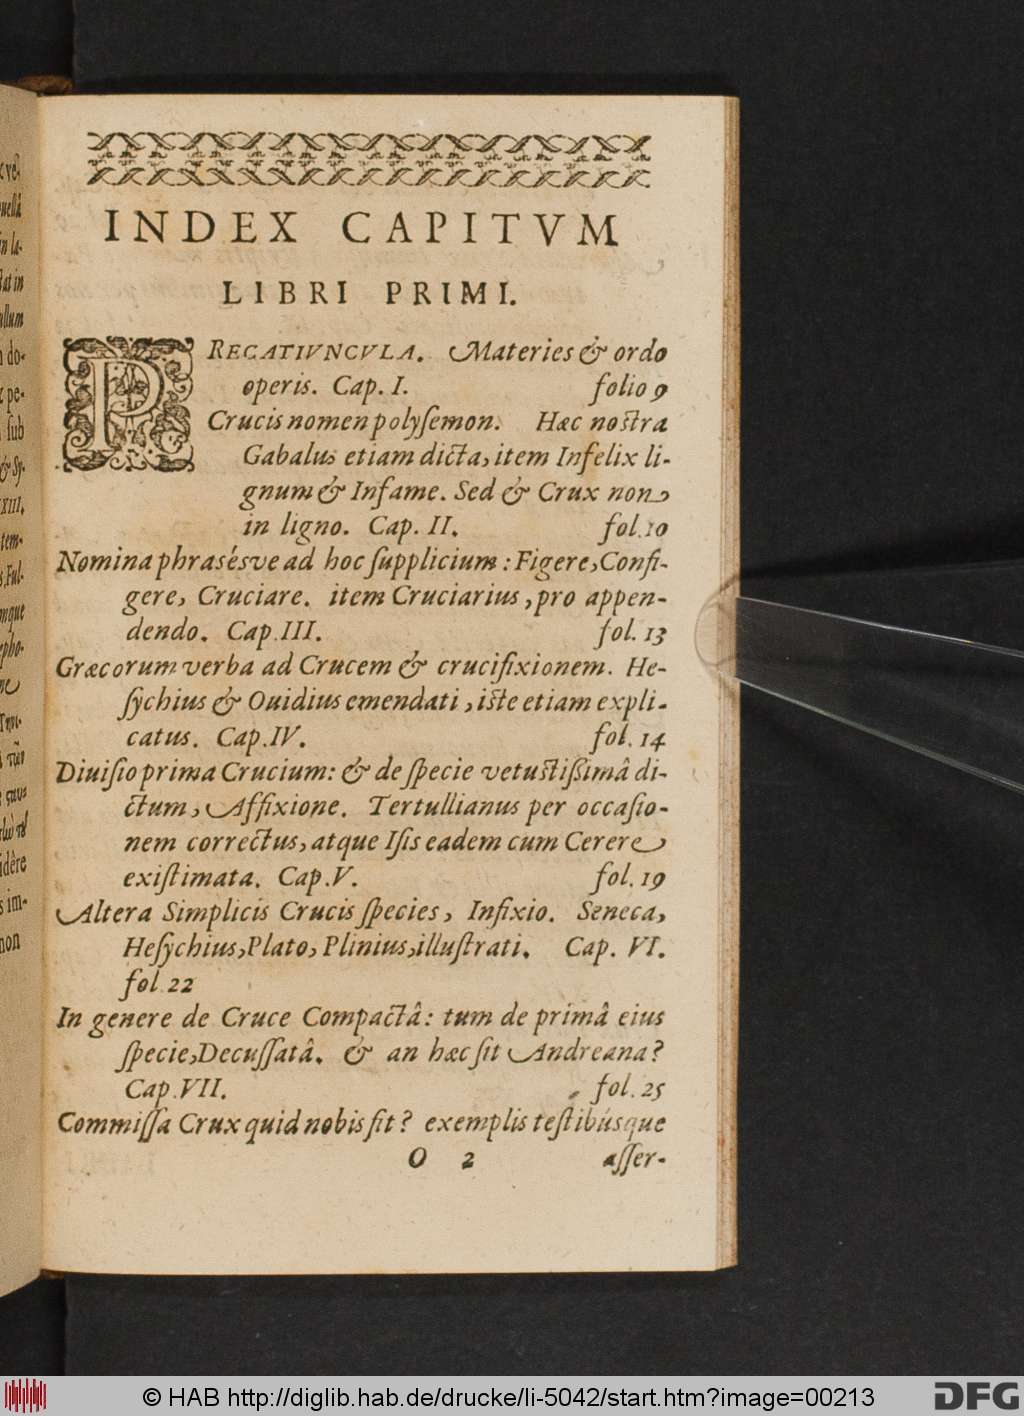 INDEX CAPITVM
LIBRI PRIMI.
PRECATIVNCVLA. Materies & ordo
operis. Cap. I. folio 9
Crucis nomen polyſemon. Hæc nostra
Gabalus etiam dicta, item Infelix li-
gnum & Infame. Sed & Crux non
in ligno. Cap. II. fol. 10
Nomina phrasésve ad hoc ſupplicium: Figere, Confi-
gere, Cruciare. item Cruciarius, pro appen-
dendo. Cap. III. fol. 13
Græcorum verba ad Crucem & crucifixionem. He-
ſychius & Ouidius emendati, iste etiam expli-
catus. Cap. IV. fol. 14
Diuiſio prima Crucium: & de ſpecie vetustißimâ di-
ctum, Affixione. Tertullianus per occaſio-
nem correctus, atque Iſis eadem cum Cerere
exiſtimata. Cap. V. fol. 19
Altera Simplicis Crucis ſpecies, Infixio. Seneca,
Heſychius, Plato, Plinius, illuſtrati. Cap. VI.
fol 22
In genere de Cruce Compactâ: tum de primâ eius
ſpecie, Decuſſatâ. & an hæc ſit Andreana?
Cap. VII. fol. 25
Commiſſa Crux quid nobis ſit? exemplis teſtibúsque
O 2 aſſer-
© HAB http://diglib.hab.de/drucke/li-5042/start.htm?image=00213
DFG